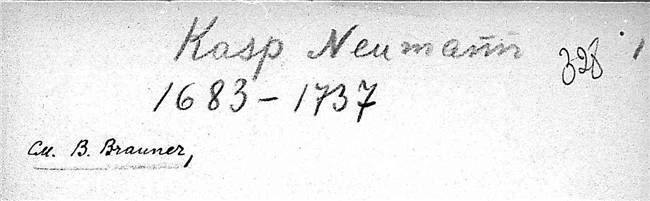 Kasp Neumann 328 1
1683 – 1737
См. B. Brauner,